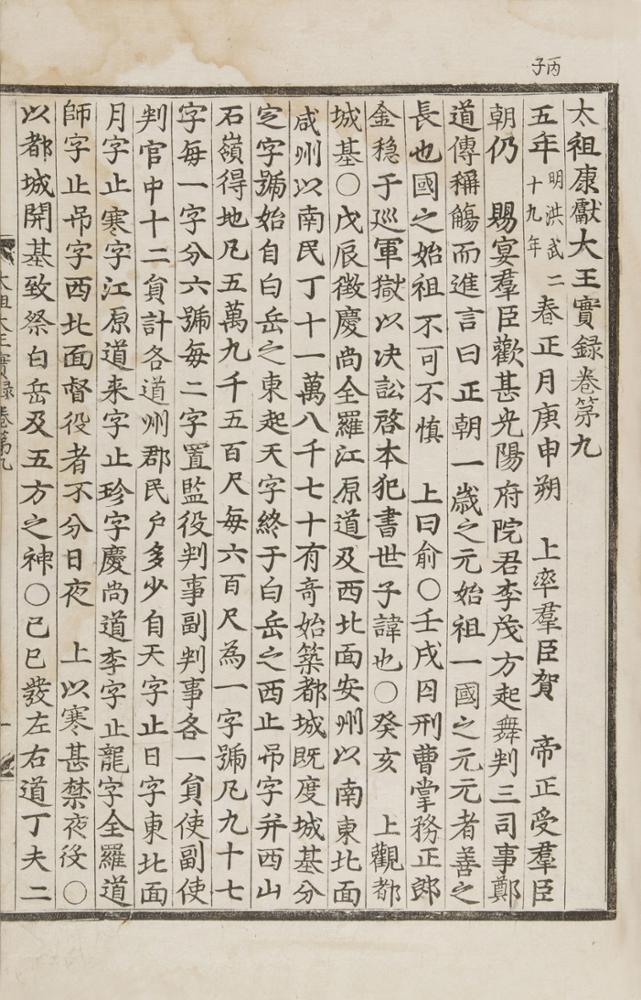 丙子
太祖康獻大王實録卷第九
五年明洪武二十九年春正月庚申朔 上率羣臣賀 帝正受羣臣
朝仍 賜宴羣臣歡甚光陽府院君李茂方起舞判三司事鄭
道傳稱觴而進言曰正朝一歲之元始祖一國之元元者善之
長也國之始祖不可不慎 上曰俞○壬戌囚刑曹掌務正郎
金穏于巡軍獄以决訟啓本犯書世子諱也○癸亥 上觀都
城基○戊辰徴慶尚全羅江原道及西北面安州以南東北面
咸州以南民丁十一萬八千七十有奇始築都城旣度城基分
定字號始自白岳之東起天字終于白岳之西止吊字幷西山
石嶺得地凡五萬九千五百尺每六百尺為一字號凡九十七
字每一字分六號每二字置監役判事副判事各一負使副使
判官中十二負計各道州郡民户多少自天字止日字東北面
月字止寒字江原道来字止珍字慶尚道李字止龍字全羅道
師字止吊字西北面督役者不分日夜 上以寒甚禁夜役○
以都城開基致祭白岳及五方之神○己巳發左右道丁夫二
太祖大王實録卷第九 一